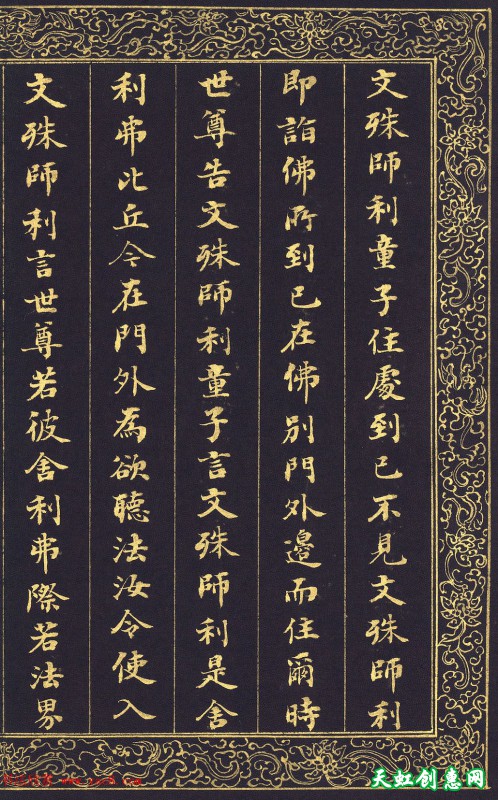 文殊師利童子住處到已不見文殊師利
即詣佛所到已在佛別門外邊而住爾時
世尊告文殊師利童子言文殊師利是舍
利弗比丘今在門外為欲聽法汝令使入
文殊師利言世尊若彼舍利弗際若法界
天虹创惠网